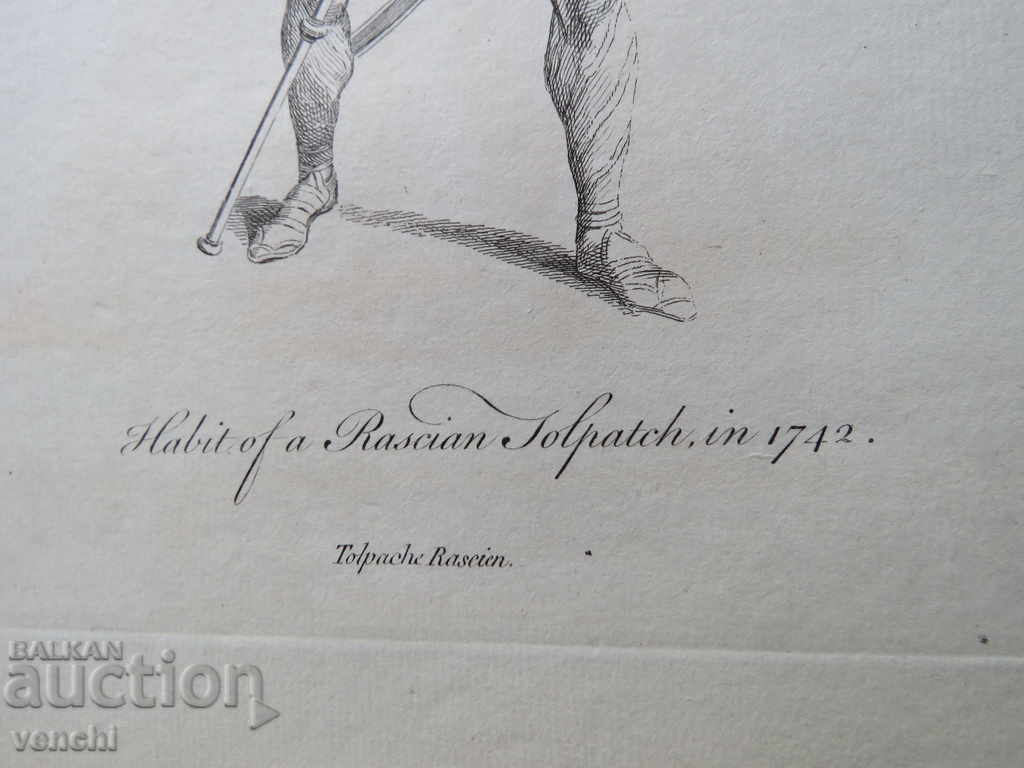 Habit of a Rascian Tolpatch, in 1742.
Tolpache Rascien.
BALKAN
auction
venchi